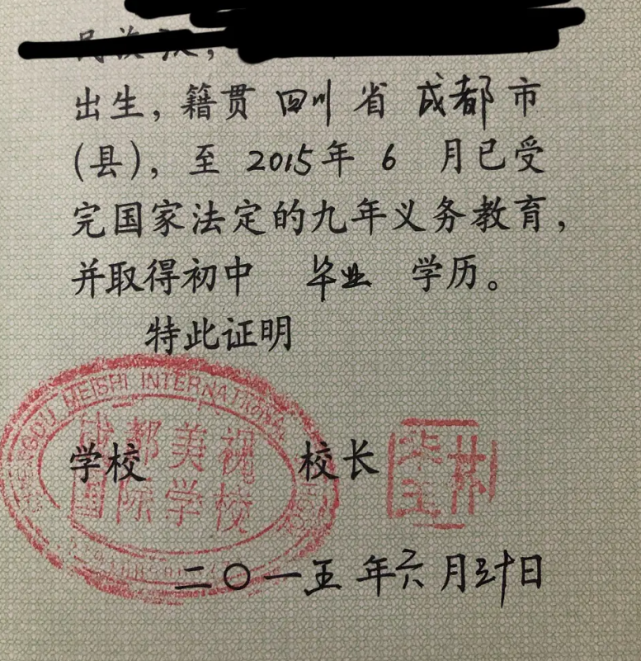 出生，籍贯 四川 省 成都 市
(县)，至 2015年 6 月已受
完国家法定的九年义务教育，
并取得初中 毕业 学历。
特此证明
MEISHI INTERNATIONAL
成都美视
国际学校
学校 校长
二〇一五 年六 月三十日